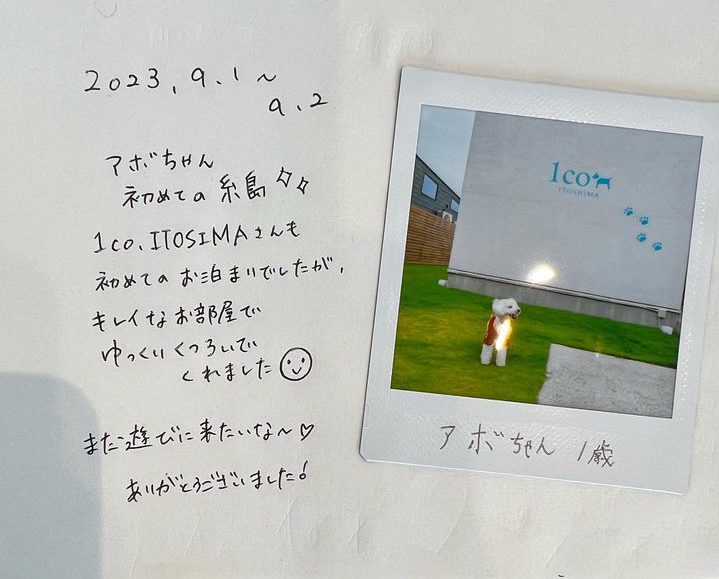 2023.9.1～
9.2
アボちゃん
初めての糸島♪♪
1co.ITOSIMAさんも
初めてのお泊まりでしたが、
キレイなお部屋で
ゆっくりくつろいで
くれました☺
また遊びに来たいな～♡
ありがとうございました!
1co.
ITOSHIMA
アボちゃん 1歳